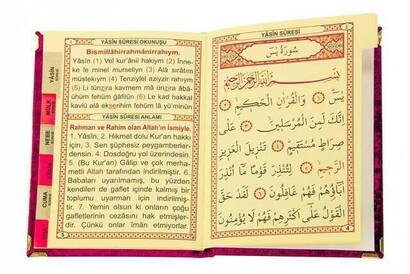 YÂSİN SÛRESİ OKUNUŞU
Bismillâhirrahmânirrahıym.
Yâsîn (1) Vel kur'ânil hakiym (2) İnne-
ke le minel murseliyn (3) Alâ sırâtım
müstekıym (4) Tenziylel aziyzir rahıym
(5) Li tünzira kavmem mâ ünzira âbâ-
ühüm fehüm ğafilûn (6) Le kad hakkal
kavlü alâ ekserihim fehüm lâ yü'minûn
YÂSİN SÛRESİ ANLAMI
Rahman ve Rahim olan Allah'ın İsmiyle.
1. Yâsin. 2. Hikmet dolu Kur'an hakkı
için, 3. Sen şüphesiz peygamberler-
densin. 4. Dosdoğru yol üzerindesin.
5. (Bu Kur'an) Gâlip ve çok merha-
metli Allah tarafından indirilmiştir. 6.
Babaları uyarılmamış, bu yüzden
kendileri de gaflet içinde kalmış bir
toplumu uyarman için indirilmiştir.
7. Yemin olsun ki onların çoğu
gafletlerinin cezâsını hak etmişler-
dir. Çünkü onlar îman etmiyorlar.
YÂSİN
MÜLK
NEBE
CUMA
YÂSİN SÛRESİ
سُورَةُ يٰسٓ
بِسْمِ اللّٰهِ الرَّحْمٰنِ الرَّحِيمِ
يٰسٓ ﴿١﴾ وَالْقُرْاٰنِ الْحَكِيمِ ﴿٢﴾
اِنَّكَ لَمِنَ الْمُرْسَلِينَ ﴿٣﴾ عَلٰى
صِرَاطٍ مُسْتَقِيمٍ ﴿٤﴾ تَنْزِيلَ الْعَزِيزِ
الرَّحِيمِ ﴿٥﴾ لِتُنْذِرَ قَوْمًا مَٓا اُنْذِرَ
اٰبَٓاؤُهُمْ فَهُمْ غَافِلُونَ ﴿٦﴾ لَقَدْ حَقَّ
الْقَوْلُ عَلٰٓى اَكْثَرِهِمْ فَهُمْ لَا يُؤْمِنُونَ